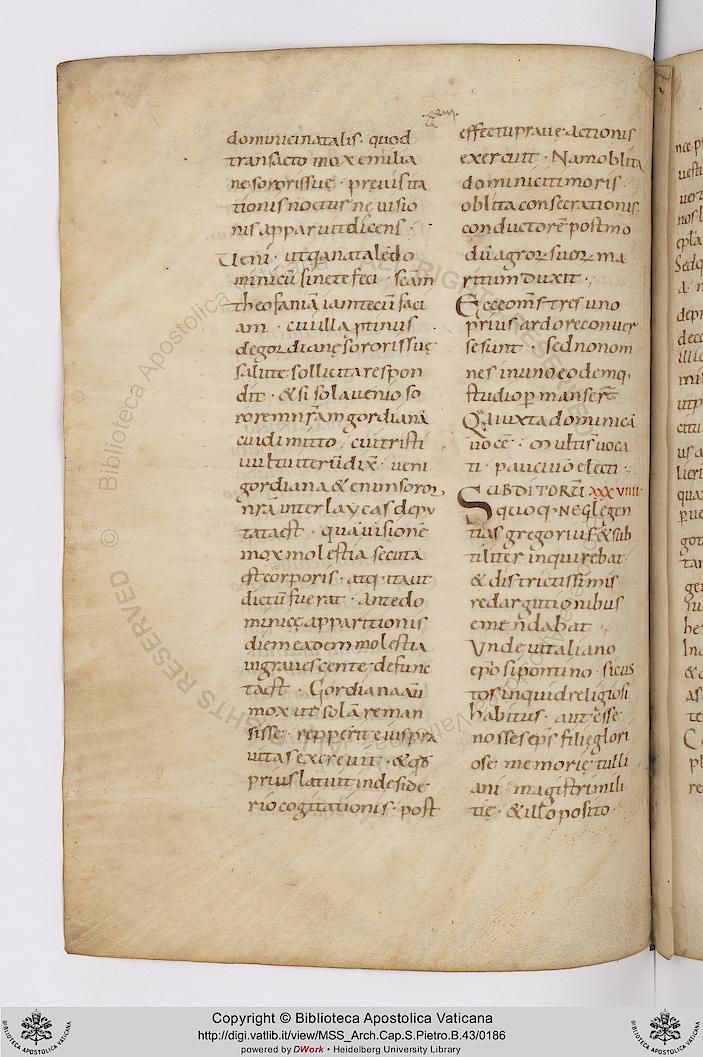 dominici natalis · quod
transacto mox emilia
ne sororis suę · pręvisita
tionis noctur nę visio
nis apparuit dicens ·
Veni · ut qa natalē do
minicū sine te feci · scām
theofaniā iam tecū faci
am · cui illa ptinus
de gordianę sororis suę
salute sollicita respon
dit · & si sola venio so
rorem nrām gordianā
cui dimitto · cui tristi
vultu iterū dix̄ · veni
gordiana & enim soror
nrā inter laycas depu
tata est · quā visionē
mox molestia secuta
est corporis · atq · ita ut
dictū fuerat · ante do
minicę apparitionis
diem eadem molestia
ingravescente defunc
ta est · Gordiana aū
mox ut se solā reman
sisse repperit eius pra
vitas excrevit · & qđ
prius latuit in deside
rio cogitationis · post
effectu prave actionis
exercuit · Nam oblita
dominici timoris
oblita consecrationis
conductorē postmo
dū agror suor ma
ritum duxit ·
Ecce om̄s tres uno
prius ardore conver
se sunt · sed non om
nes in uno eodemq ·
studio p manserт̄
Qa iuxta dominicā
vocē · multi s̄ voca
ti · pauci v̄o electi ·
SUBDITORŪ XXVIIII
quoq · neglegen
tias gregorius & sub
tiliter inquirebat
& districtissimis
redargutionibus
emen̄dabat ·
Unde vitaliano
ep̄o sipontino · sicus
tos inquid religiosi
habitus · aut esse
nosses ep̄s filię glori
ose memorię tulli
ani magistri mili
tię · & illō posito ·
Copyright © Biblioteca Apostolica Vaticana
http://digi.vatlib.it/view/MSS_Arch.Cap.S.Pietro.B.43/0186
powered by DWork • Heidelberg University Library